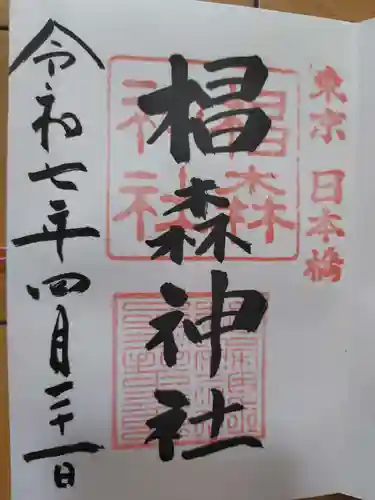 東京 日本橋
椙森神社
椙森神社
令和七年四月二十一日